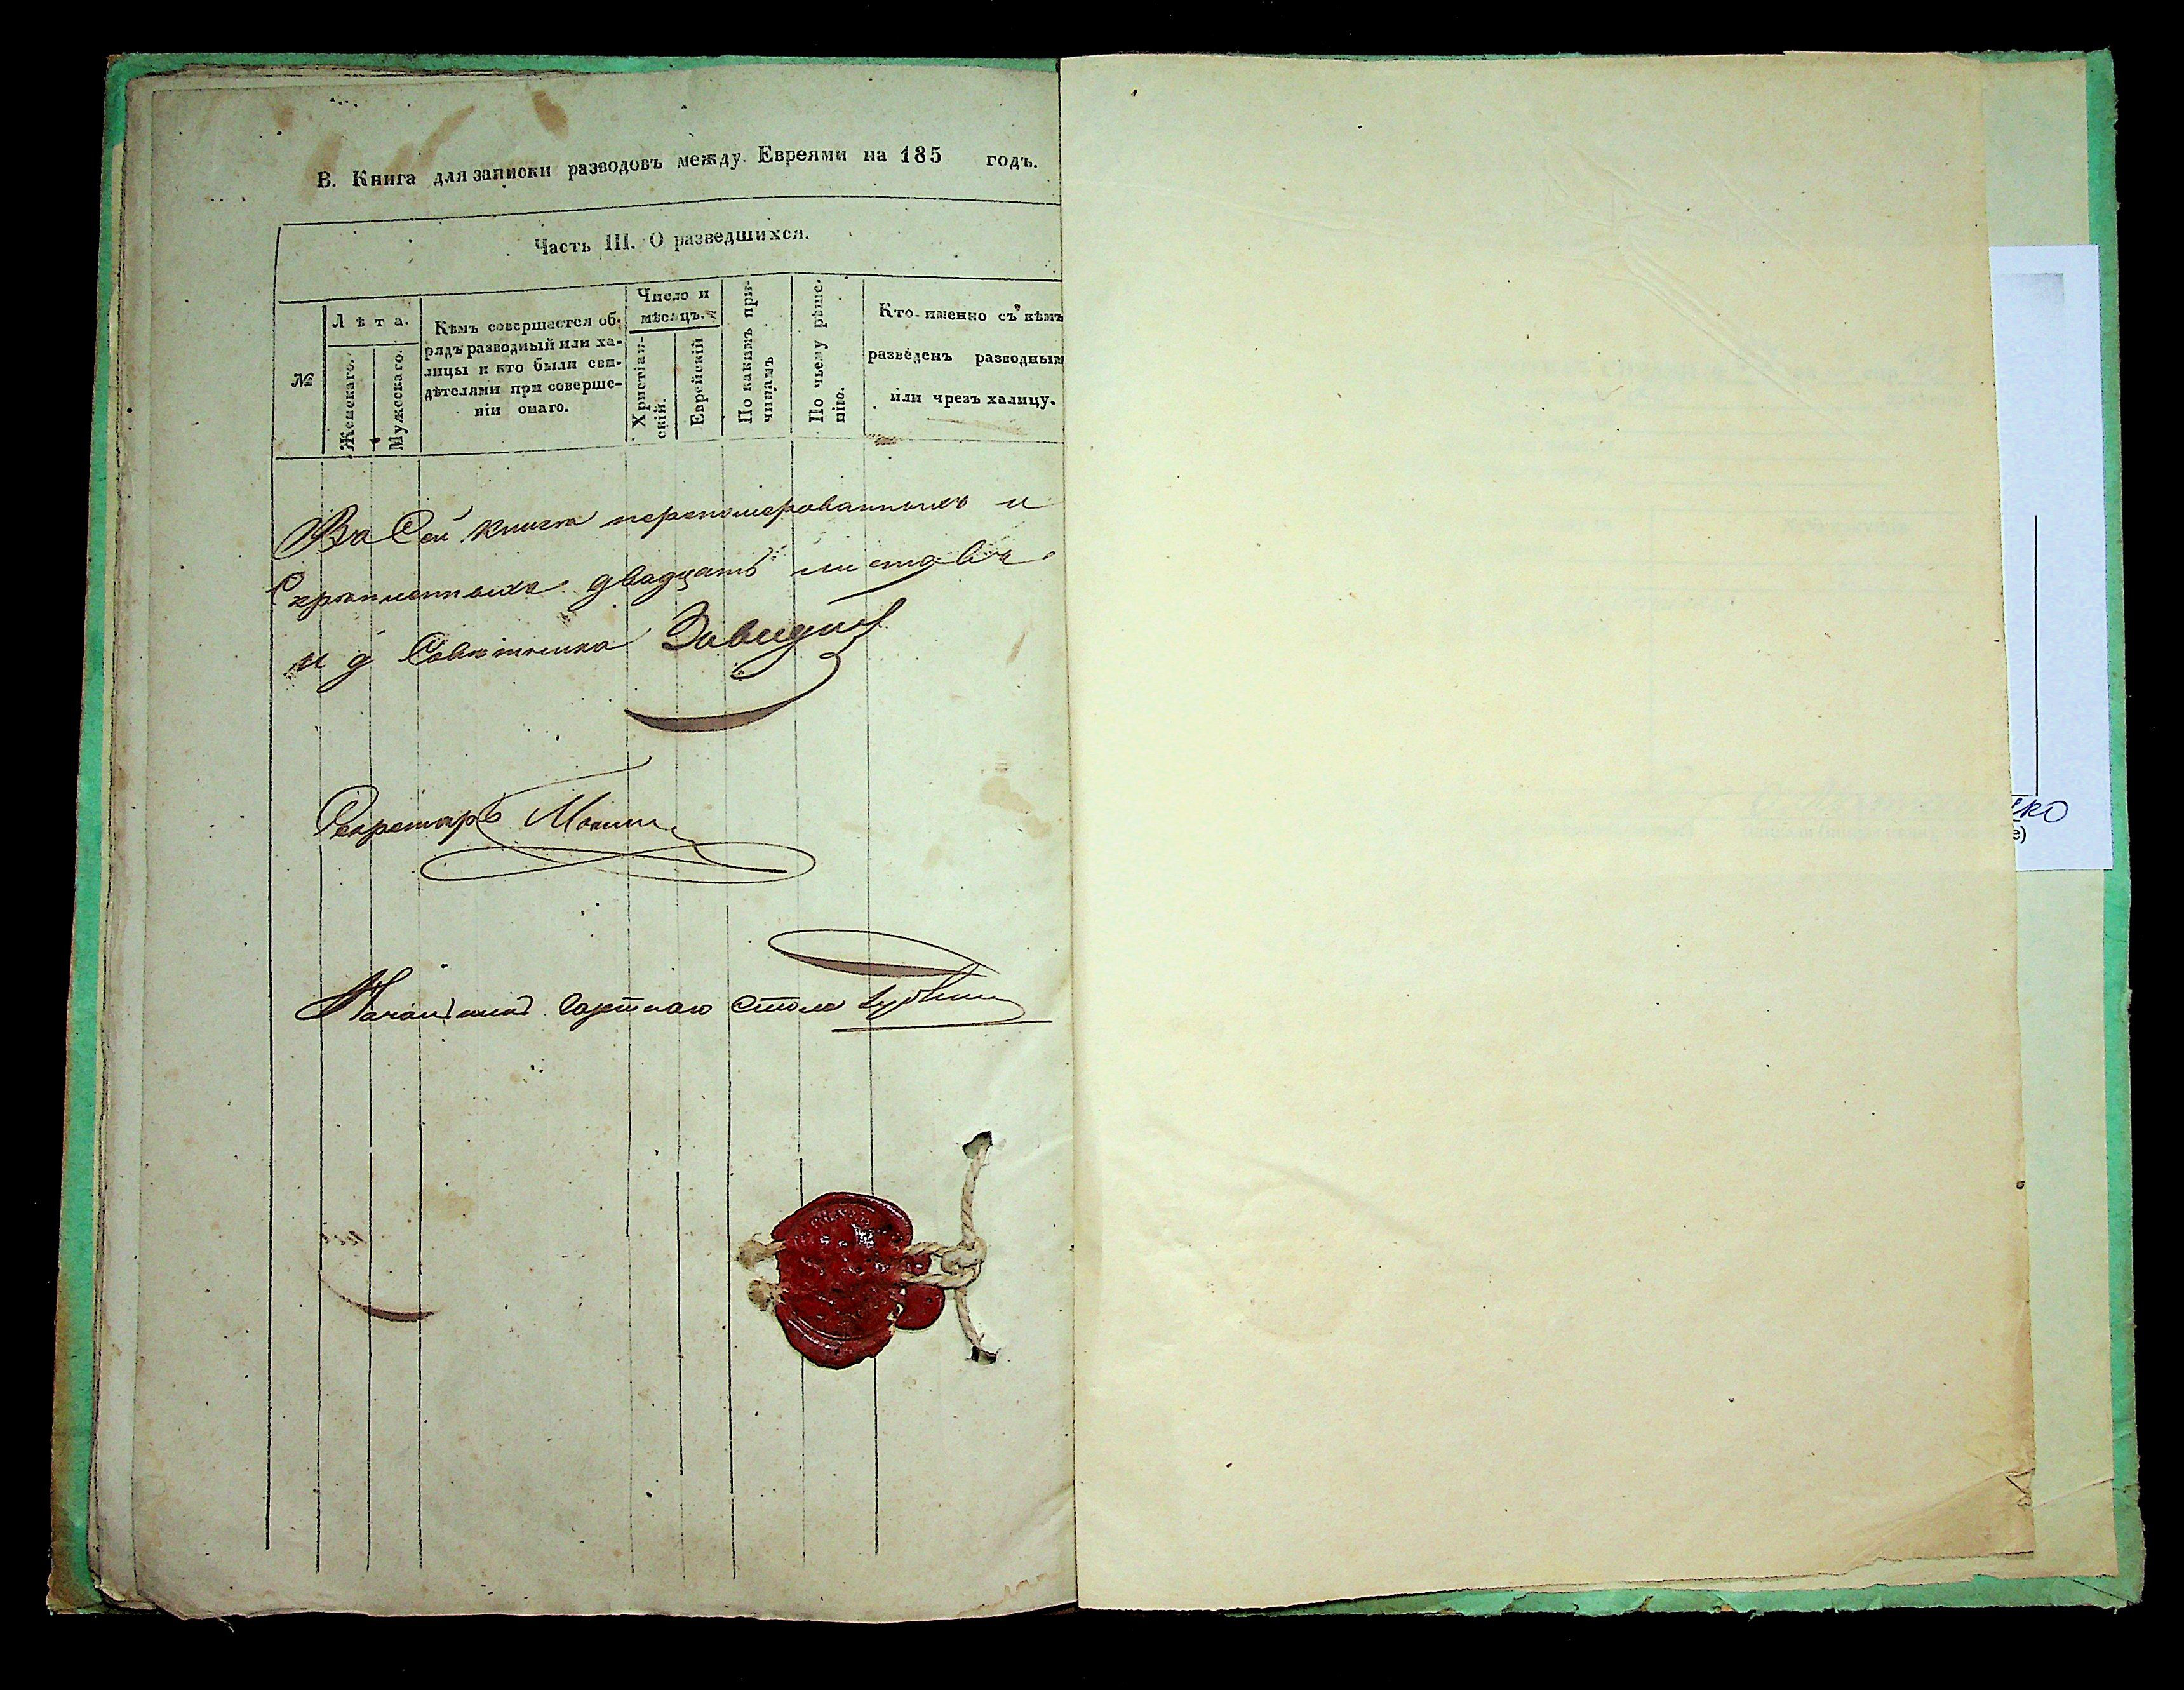 В. Книга для записки разводовъ между Евреями на 185 годъ.
Часть III. О разведшихся.
№
Лѣта.
Женскаго.
Мужескаго.
Кѣмъ совершается об-
рядъ разводный или ха-
лицы и кто были сви-
дѣтелями при соверше-
ніи онаго.
Число и
мѣсяцъ.
Христіан-
скій.
Еврейскій
По какимъ при-
чинамъ
По чьему рѣше-
нію.
Кто именно съ кѣмъ
разведенъ разводнымъ
или чрезъ халицу.
Въ Сей книгѣ перенумерованныхъ и
Скрѣпленныхъ двадцать листовъ
и д Совѣтника
Секретарь
Стола